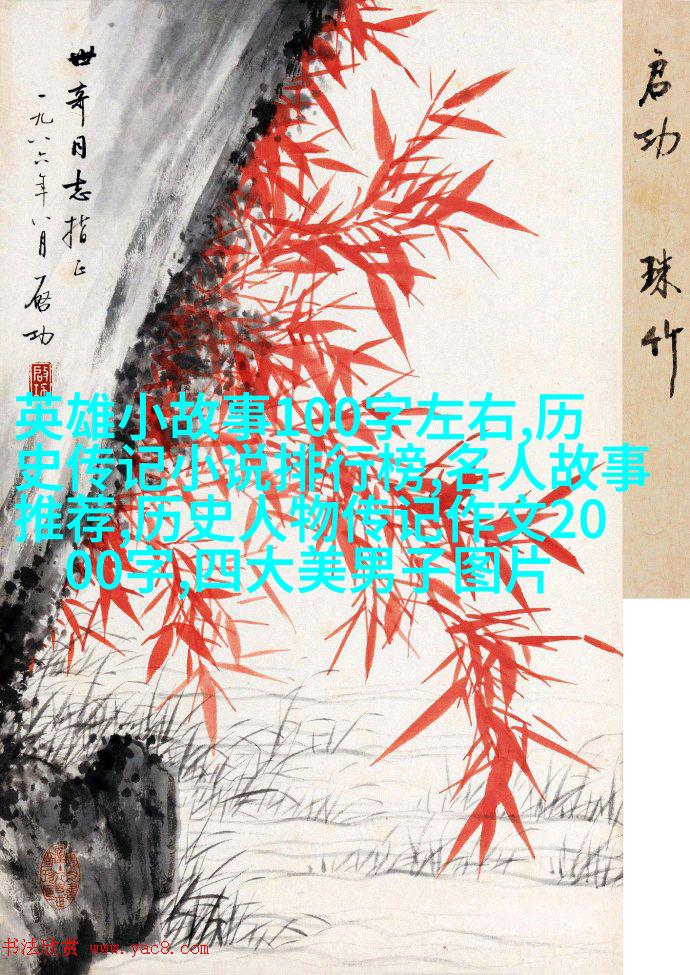 世奇同志指正
一九八六年八月 启功
启功 珠竹
英雄小故事100字左右,历
史传记小说排行榜,名人故事
推荐,历史人物传记作文20
00字,四大美男子图片
书法欣赏 www.yac8.com